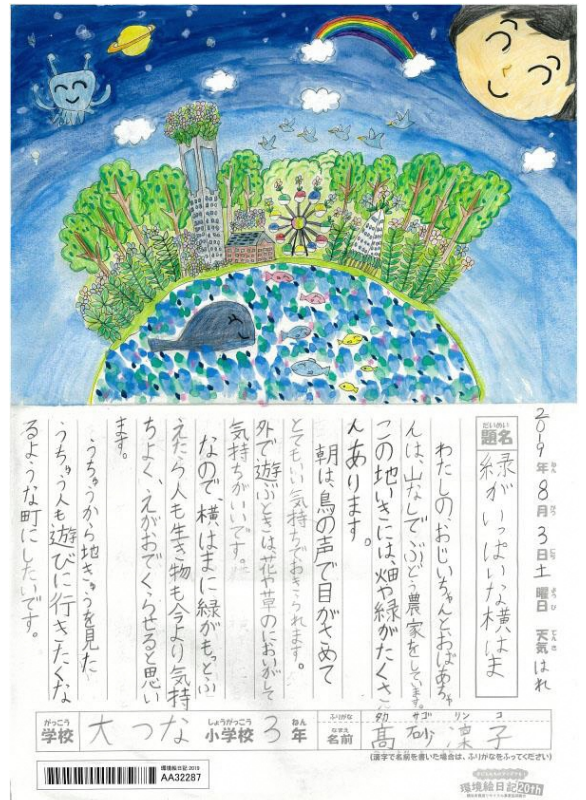 2019年8月3日土曜日 天気はれ
ねん
がつ
にち
ようび
てんき
だいめい
題名
緑がいっぱいな横はま
わたしの、おじいちゃんとおばあちゃ
んは、山なしでぶどう農家をしています。
この地いきには、畑や緑がたくさ
んあります。
朝は、鳥の声で目がさめて
とてもいい気持ちでおきられます。
外で遊ぶときは花や草のにおいがして
気持ちがいいです。
なので、横はまに緑がもっとふ
えたら人も生き物も今より気持
ちよく、えがおでくらせると思い
ます。
うちゅうから地きゅうを見た
うちゅう人も遊びに行きたくな
るような町にしたいです。
がっこう
学校
大つな
しょうがっこう
小学校
3
ねん
年
ふりがな
タカ サゴ リン コ
なまえ
名前
髙砂凜子
(漢字で名前を書いた場合は、ふりがなをふってください)
環境絵日記2019
AA32287
環境絵日記20th